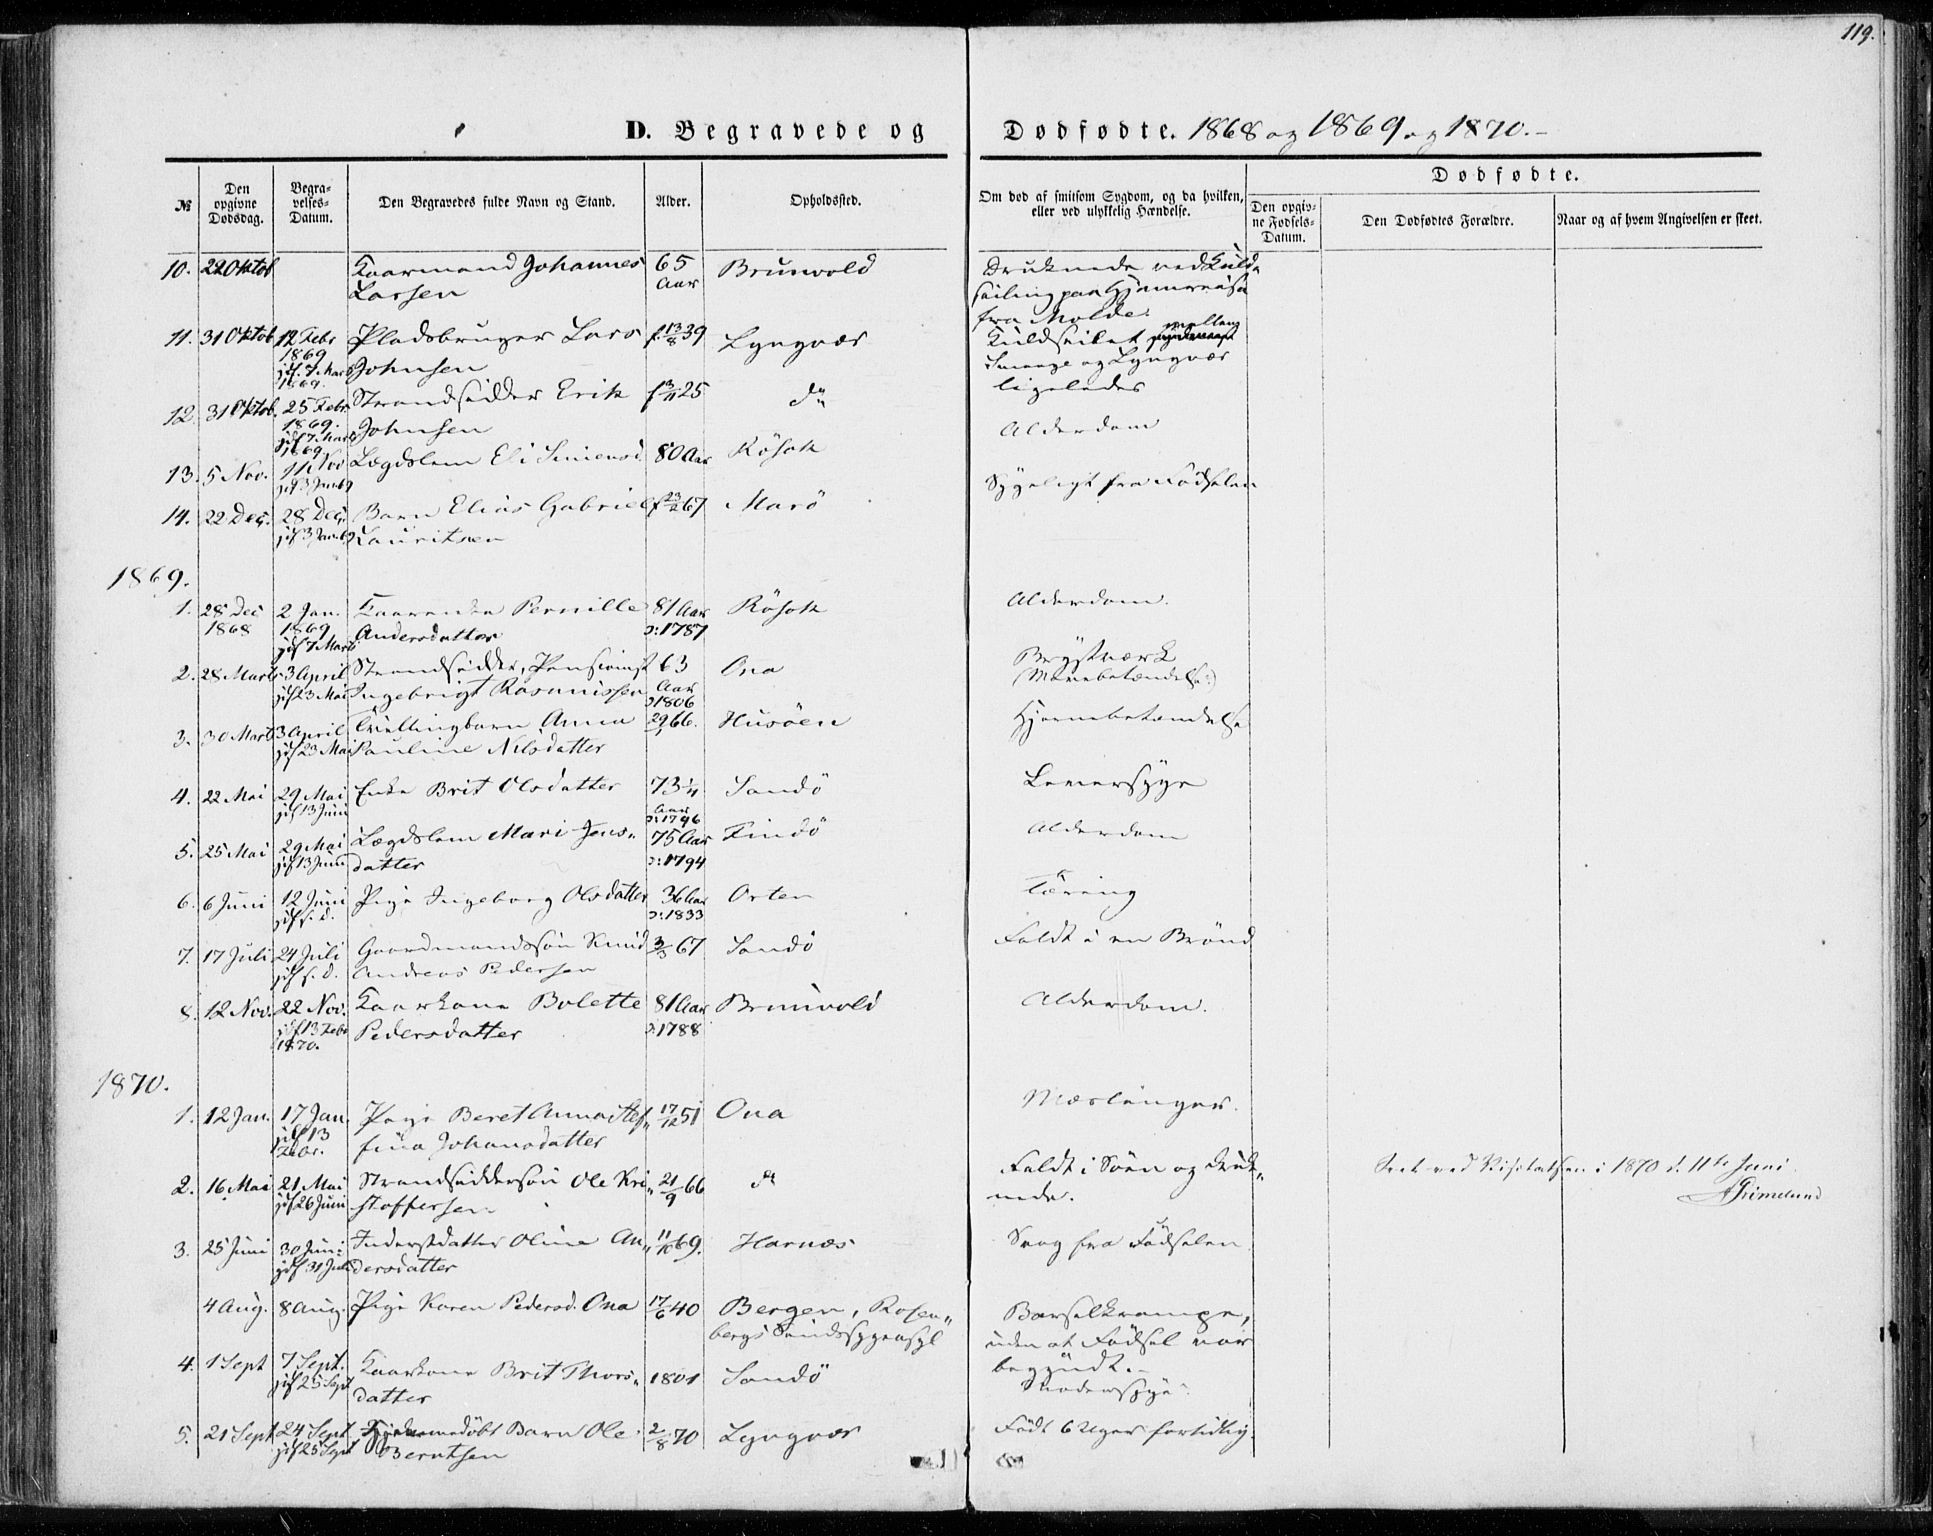 119.
D. Begravede og Dødfødte. 1868 og 1869 og 1870.-
№
Den opgivne Dødsdag.
Begravelses-Datum.
Den Begravedes fulde Navn og Stand.
Alder.
Opholdssted.
Om død af smitsom Sygdom, og da hvilken, eller ved ulykkelig Hændelse.
Dødfødte.
Den opgivne Fødsels-Datum.
Den Dødfødtes Forældre.
Naar og af hvem Angivelsen er skeet.
10. 22 Oktob Kaarmand Johannes 65 Brunvold Druknede ved Kuld-
Larsen Aar seiling paa Hjemreise
fra Molde.
11. 31 Oktob 12 Febr Pladsbruger Lars f. 13/8 39 Lyngvær Kuldseilet mellem
1869 Johnsen Smaage og Lyngvær
jdf. 7 Marts
1869.
12. 31 Oktob. 25 Febr Strandsidder Erik f 3/11 25 do ligeledes
1869. Johnsen
jdf 7 Marts
1869
13. 5 Nov. 11 Nov Lægdslem Eli Simensd. 80 Aar Røsok Alderdom
jdf 3 Jan 69
14. 22 Dec. 28 Dec. Barn Elias Gabriel f 23/ 67 Marø Sygeligt fra Fødselen
jdf 3 Jan. 69 Lauritsen
1869.
1. 28 Dec 2 Jan. Kaarenke Pernille 81 Aar Røsok Alderdom.
1868 1869 Andersdatter ɔ: 1787
jdf 7 Marts
2. 28 Marts 3 April Strandsidder, Pensionist 63 Ona Brystværk
jdf 23 Mai Ingebrigt Rasmussen Aar
ɔ 1806
3. 30 Marts 3 April Tvillingbarn Anna 29/ 66. Husøen Hjernebetændelse
jdf 23 Mai Pauline Nilsdatter
4. 22 Mai 29 Mai Enke Brit Olsdatter 73 1/4 Sandø Leversyge
jdf 13 Juni Aar
ɔ: 1796
5. 25 Mai 29 Mai Lægdslem Mari Jens- 75 Aar Findø Alderdom
jdf 13 Juni datter ɔ: 1794
6. 6 Juni 12 Juni Pige Ingeborg Olsdatter 36 Aar Orten Tæring
jdf s. d. ɔ: 1833
7. 17 Juli 24 Juli Gaardmandssøn Knud 3/3 67 Sandø Faldt i en Brønd
jdf s. d. Andreas Pedersen
8. 12 Nov. 22 Nov. Kaarkone Bolette 81 Aar Brunvold Alderdom.
jdf 13 Febr Pedersdatter ɔ: 1788
1870.
1870.
1. 12 Jan. 17 Jan. Pige Beret Anna Stef- 17/12 51 Ona Mæslinger.
jdf 13 fina Johansdatter
Febr.
2. 16 Mai 21 Mai Strandsiddersøn Ole Kri- 21/9 66 do Faldt i Søen og druk-
jdf 26 Juni stoffersen nede.
Seet ved Visitatsen i 1870 d. 11te Juni.
Grimelund
3. 25 Juni 30 Juni Inderstdatter Oline An- 11/10 69. Harnæs Svag fra Fødselen
jdf 31 Juli dersdatter
4 Aug. 8 Aug. Pige Karen Pedersd. Ona 17/6 40 Bergen, Rosen- Barselkrampe,
bergs Sindssygeasyl uden at Fødsel var
begyndt.-
4. 1 Sept 7 Sept. Kaarkone Brit Thors- 1801 Sandø
jdf 25 Sept datter
5. 21 Sept 24 Sept Hjemmedøbt Barn Ole 2/8 70 Lyngvær Født 6 Uger fortidlig.
jdf 25 Sept Berntsen